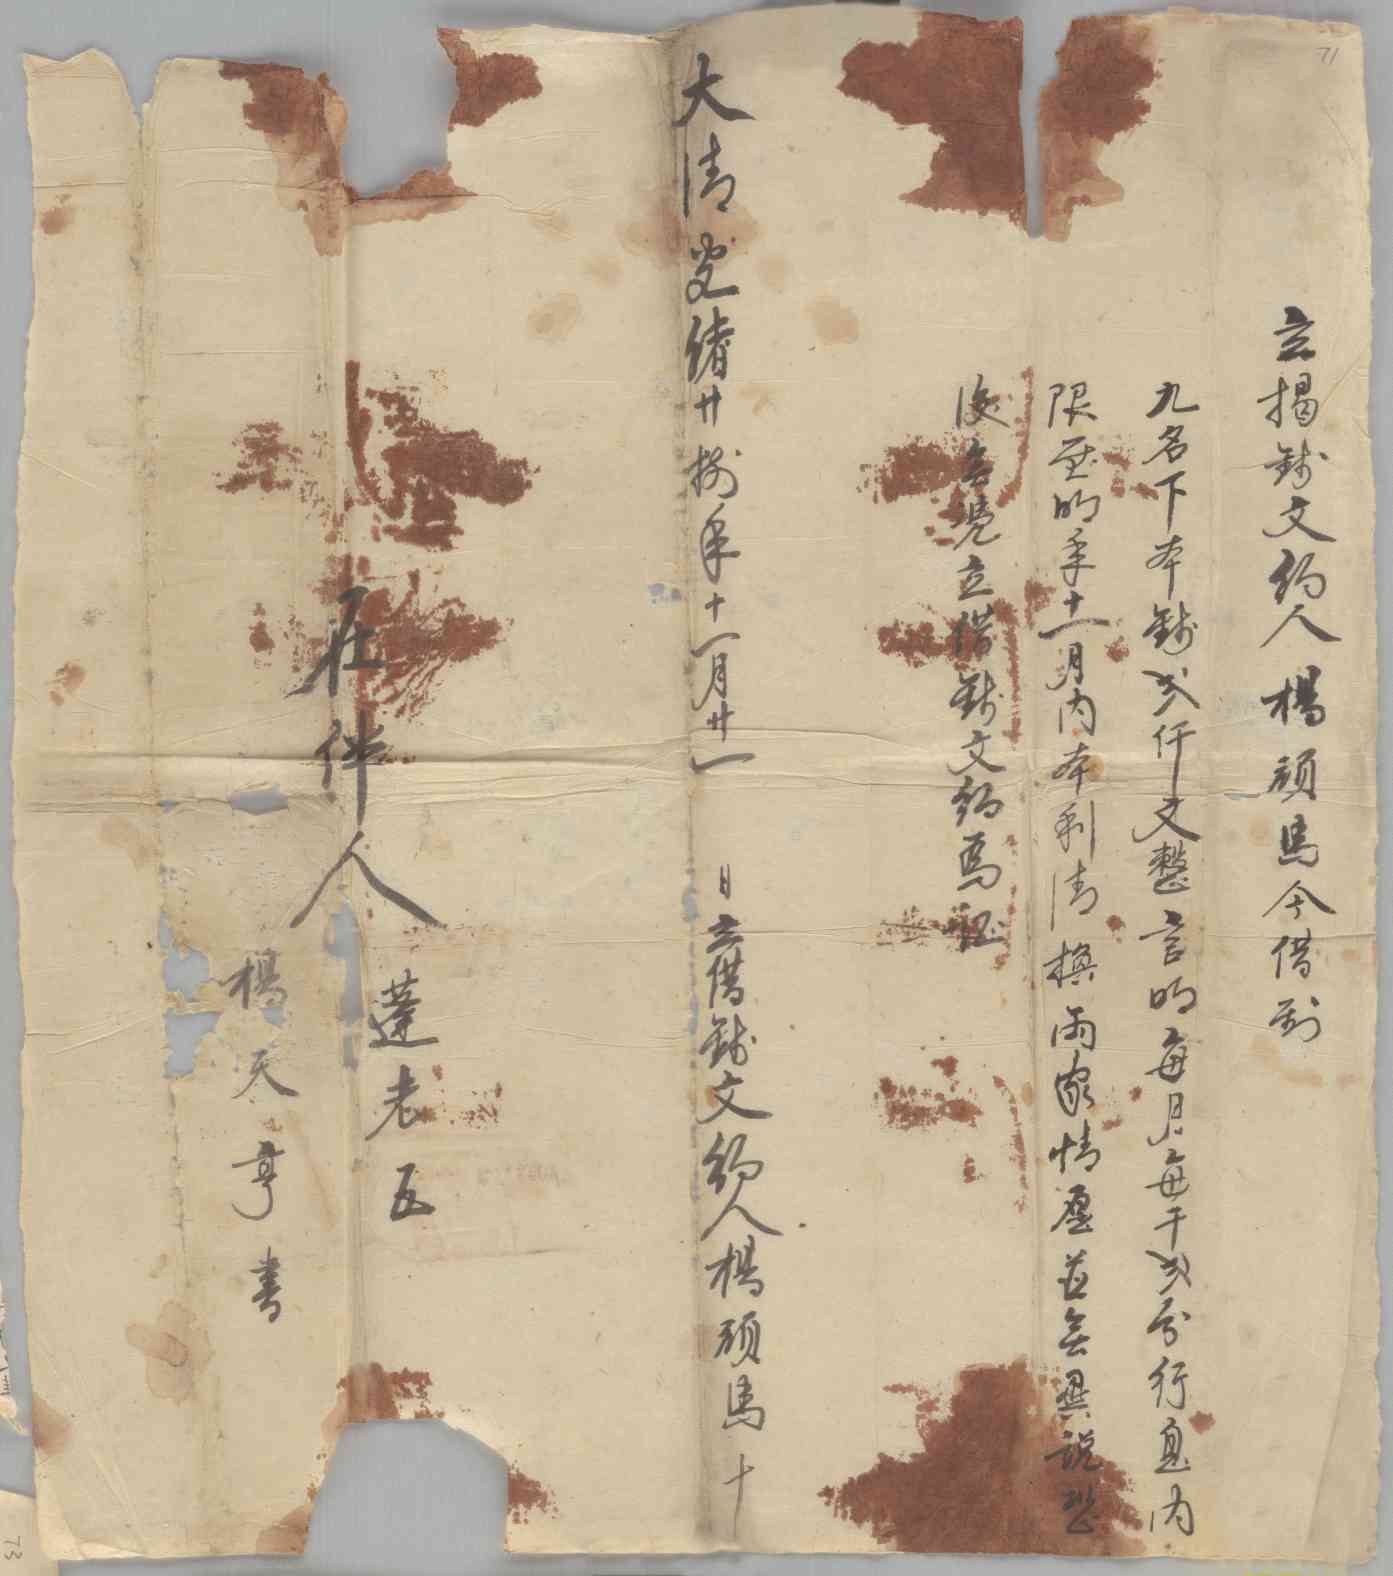 立揭錢文約人楊顧馬今借到
九名下本錢弍仟文整言明每月每千弍分行息内
限至明年十一月内本利清換兩家情愿並無異説恐
後無凴立借錢文約爲証
大清光緒廿捌年十一月廿一 日立借錢文約人楊顧馬十
在伴人
蓬老五
楊天亨書
71
73